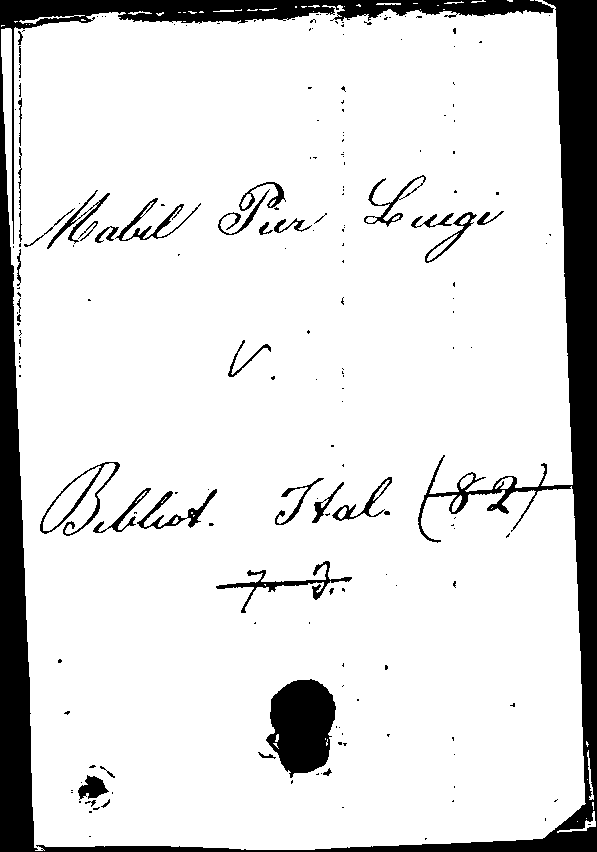 Mabil Pier Luigi
V.
Bibliot. Ital. (82)
7. 3.